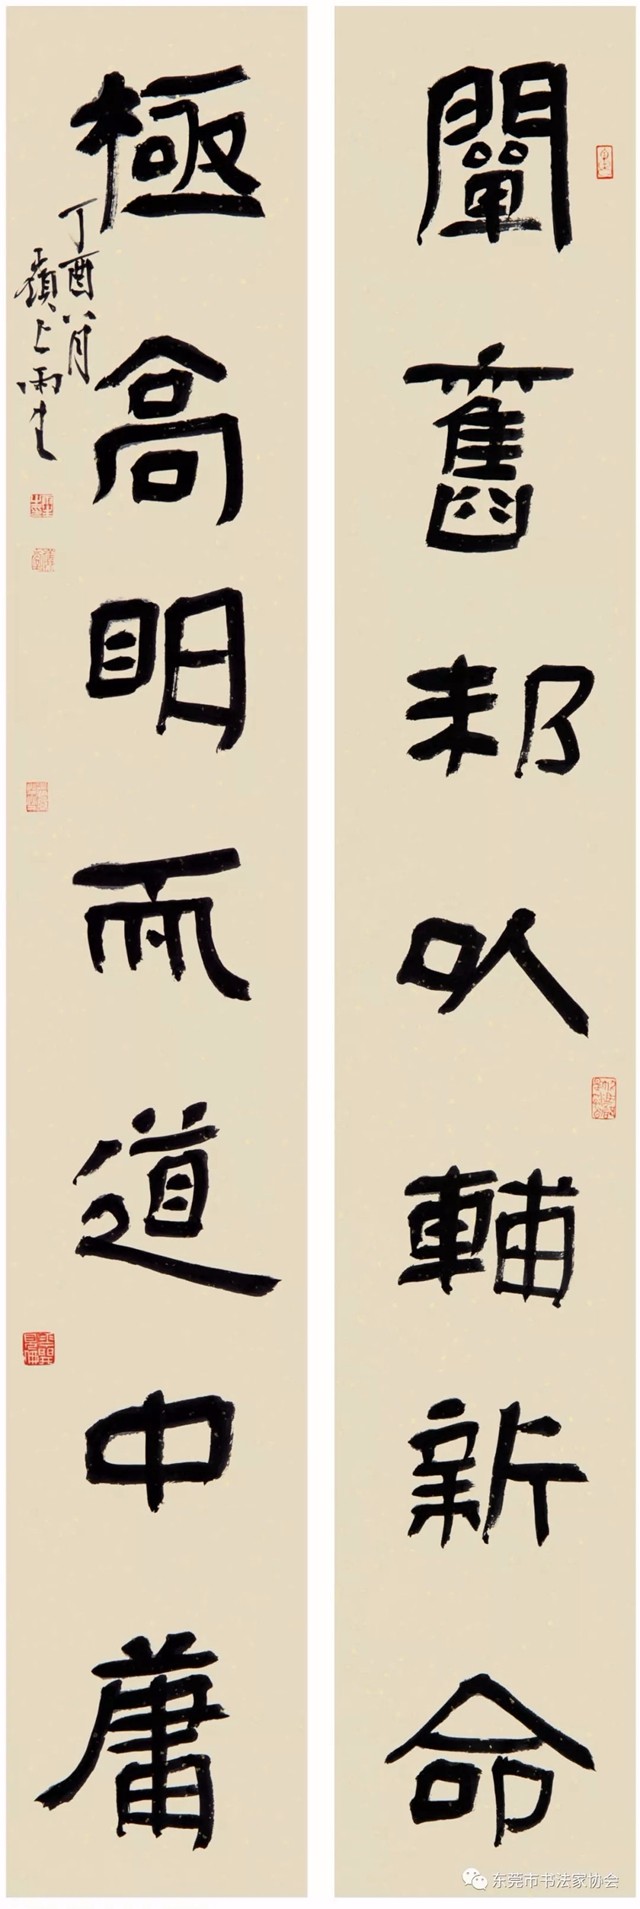 闡舊邦以輔新命
極高明而道中庸
丁酉八月
嶺上雨生
东莞市书法家协会